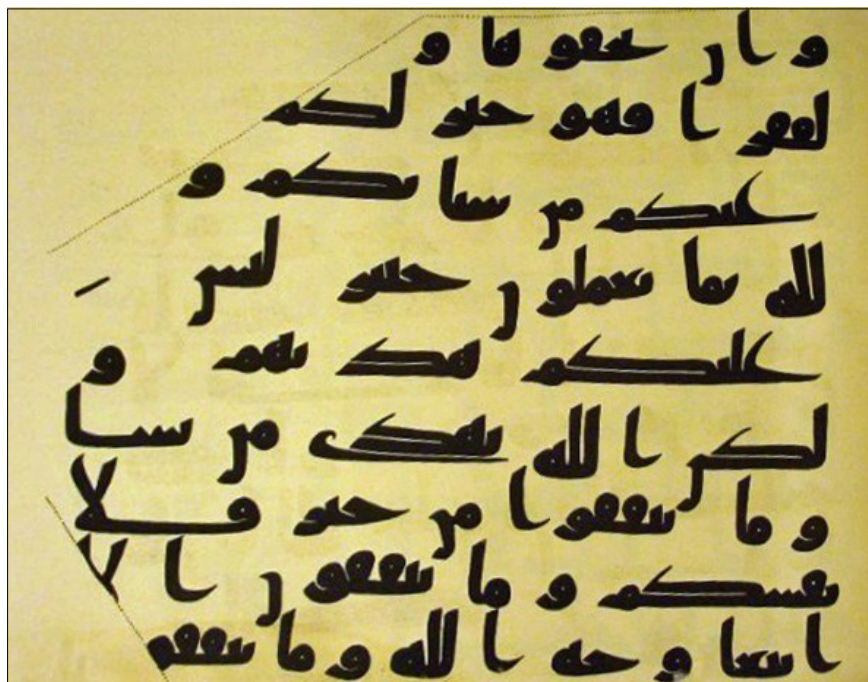 وان تخفوها و
لفقرا فهو خير لكم
عنكم من سياتكم و
لله بما تعملون خبير ليس
عليكم هديهم و
لكن الله يهدي من يشا
وما تنفقوا من خير فلا
نفسكم وما تنفقون الا
ابتغا وجه الله وما تنفقو